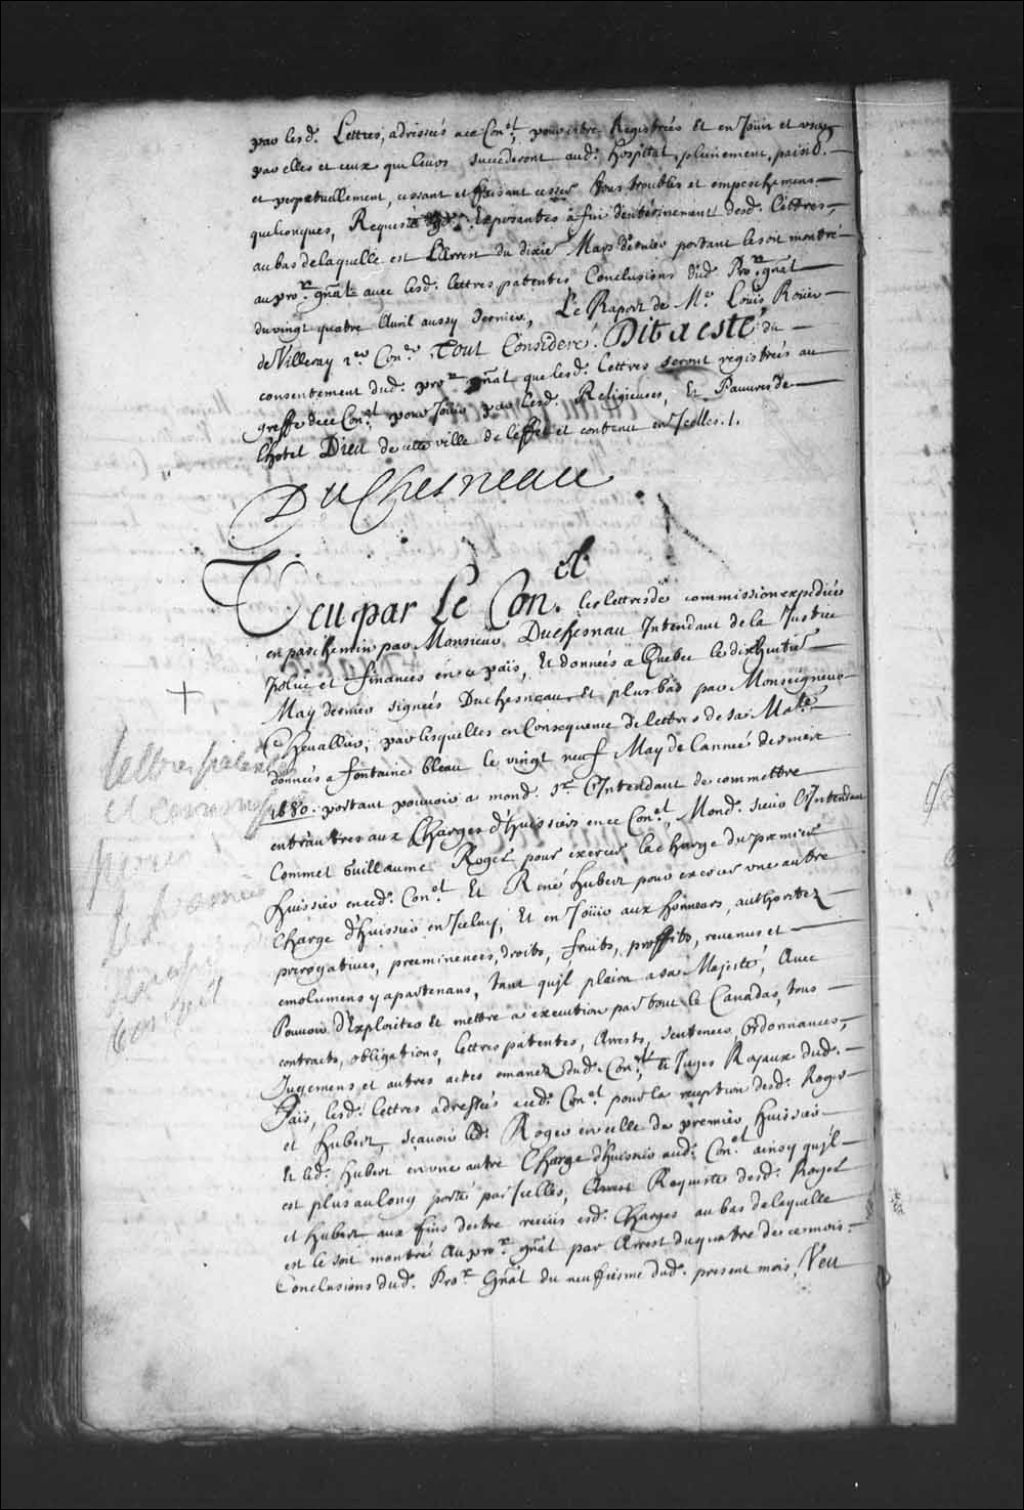 par lesd. Lettres, adressées aud Con.el pour estre Registrées Et en Joüir et user
par elles et ceux qui leurs succederont aud. hospital, pleinement, paisib.
et perpetuellement, cessant et faisant cesser tous troubles et empeschemens
quelconques, Requeste Exposantes a fin d'enterinement desd. Lettres,
au bas de laquelle est L'Arrest du dixie Mars dernier portant le soit montré
au pro.r gñal avec lesd. lettres patentes Conclusions dud Pro.r gñal
du vingt quatre Avril aussy dernier, Le Raport de M.e Louis Roüer
de Villeray p.er Con.er Tout Consideré. Dit a esté du
consentement dud. pro.r gñal que lesd. Lettres seront registrées au
greffe de ce Con.el pour Joüir par lesd. Religieuses, Et Pauvres de
L'hotel Dieu de cette ville de l'effet et contenu en Jcelles./.
DuChesneau
Veu par Le Con.el les lettres de commission expediées
en parchemin par Monsieur Duchesnau Intendant de la Justice
police et finances en ce païs, Et données a Quebec le dixhuitie
May dernier signées Duchesneau Et plus bas par Monseigneur
Chevallier, par lesquelles en Consequence de lettres de sa Ma.té
données a fontaine bleau le vingt neuf May de l'année derniere
1680. portant pouvoir a mond. s.r L'Intendant de commettre
entr'autres aux Charges d'huissiers en ce Con.el, Mond. sieur L'Intendant
Commet Guillaume Roger pour exercer la charge du premier
huissier en ced. Con.el Et René hubert pour exercer une autre
Charge d'huissier en Jceluy, Et en Joüir aux honneurs, authoritez
prerogatives, preeminences, droits, fruits, proffits, revenus et
emolumens y apartenans, tant qu'jl plaira a sa Majesté, Avec
Pouvoir d'Exploiter Et mettre a execution par tout le Canadas, tous
contracts, obligations, lettres patentes, Arrests, sentences, Ordonnances,
Jugemens et autres actes emanez dud. Con.el et Juges Royaux dud.
Païs, lesd. lettres adressées aud. Con.el pour la reception desd. Roger
et hubert, sçavoir led. Roger en celle de premier huissier
Et led. hubert en une autre Charge d'huissier aud. Con.el ainsy qu'jl
est plus au long porté par Jcelles, Requeste desd. Roger
et hubert aux fins d'estre receus esd. Charges au bas de laquelle
est le soit montré Au pro.r gñal par Arrest du quatre de ce mois.
Conclusions dud. Pro.r Gñal du neufiesme dud. present mois, Veu
lettres patentes
et commis
premier